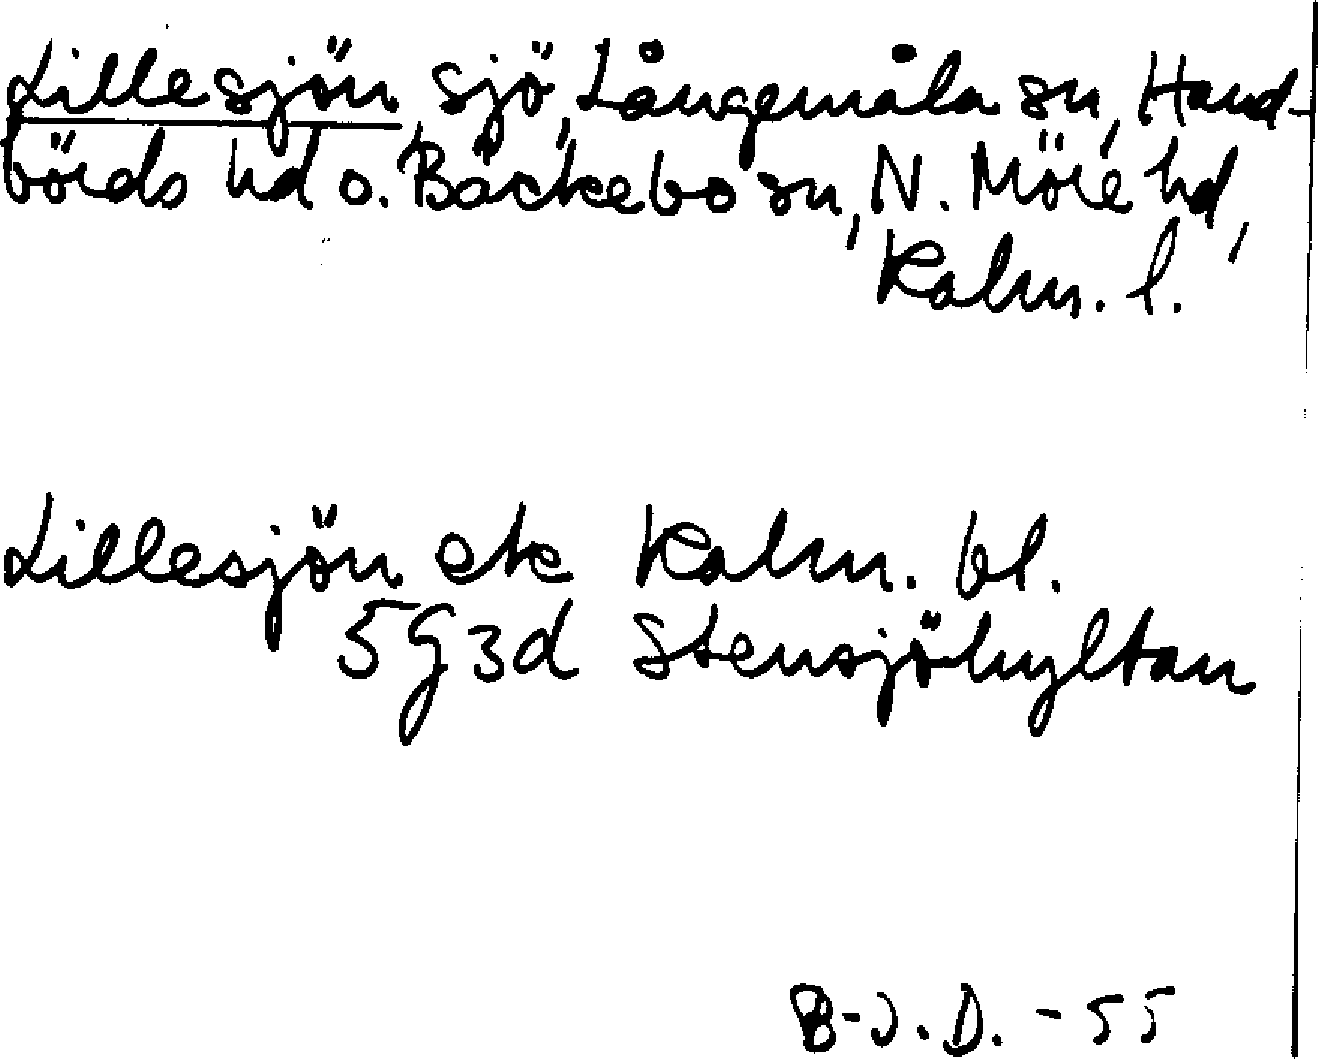 Lillesjön, sjö, Långemåla sn, Hand-
börds hd o. Bäckebo sn, N. Möre hd,
Kalm. l.
Lillesjön ek Kalm. bl.
5G3d Stensjöhyltan
B-J.D. -55